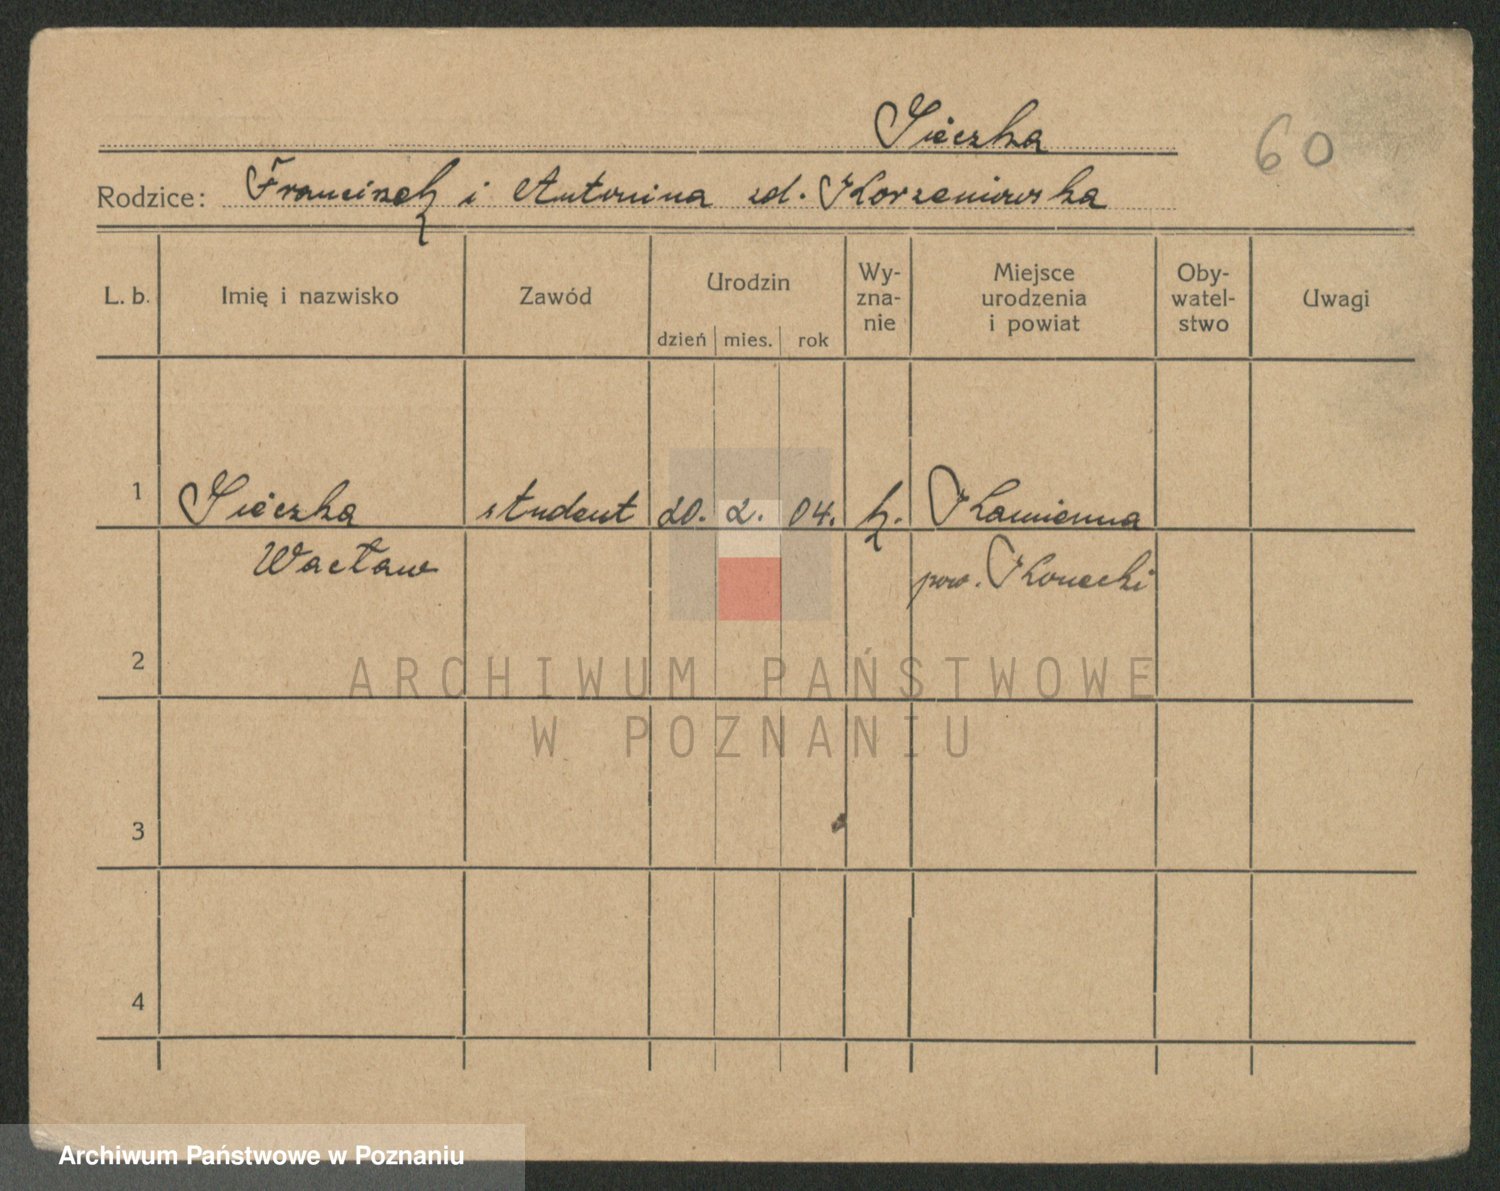 Sieczka
60
Rodzice: Franciszek i Antonina zd. Korzeniowska
L. b. Imię i nazwisko Zawód Urodzin Wy-zna-nie Miejsce urodzenia i powiat Oby-watel-stwo Uwagi
dzień mies. rok
1 Sieczka student 20. 2. 04. k. Kamienna
Wacław pow. Konecki
2
ARCHIWUM PAŃSTWOWE
W POZNANIU
3
4
Archiwum Państwowe w Poznaniu